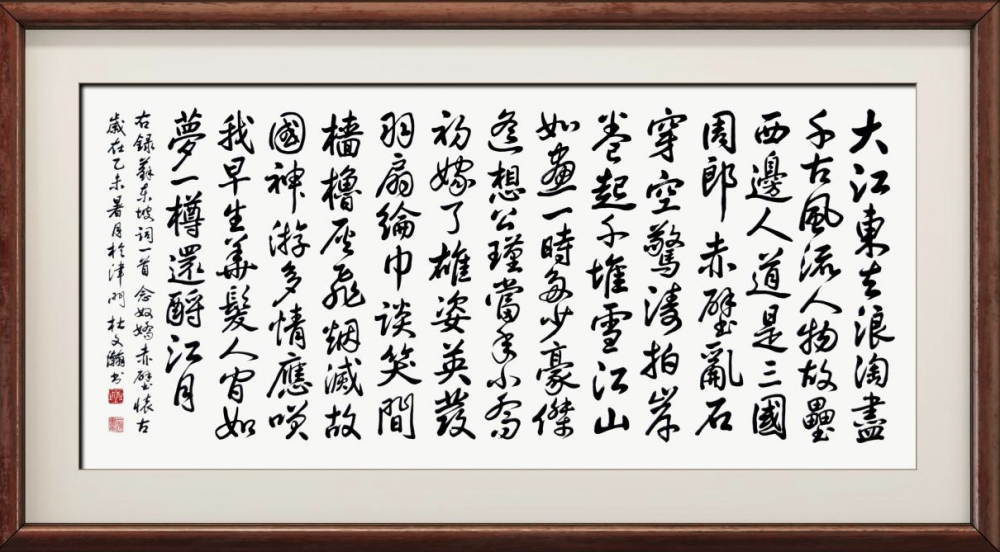 大江東去浪淘盡
千古風流人物故壘
西邊人道是三國
周郎赤壁亂石
穿空驚濤拍岸
卷起千堆雪江山
如畫一時多少豪傑
遙想公瑾當年小喬
初嫁了雄姿英發
羽扇綸巾談笑間
檣櫓灰飛烟滅故
國神游多情應咲
我早生華髮人間如
夢一樽還酹江月
右錄蘇東坡詞一首 念奴嬌赤壁懷古
歲在乙未暑月於津門 杜文瀚書